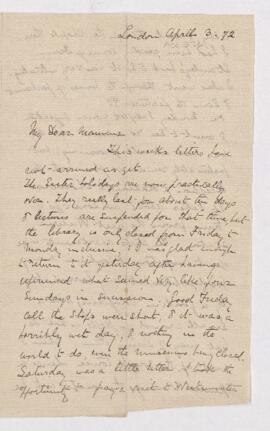 London April 3. 72
My Dear Mamma
This week's letters have
not arrived as yet.
The Easter holidays are now practically
over. They really last for about ten days
& lectures are suspended for that time, but
the library is only closed from Friday to
Monday inclusive, & I was glad enough
to return to it yesterday after having
experienced what seemed very like four
Sundays in succession. Good Friday
all the shops were shut, & it was a
horribly wet day, & nothing in the
world to do, even the museums being closed.
Saturday was a little better & I took the
opportunity to pay a visit to Westminster